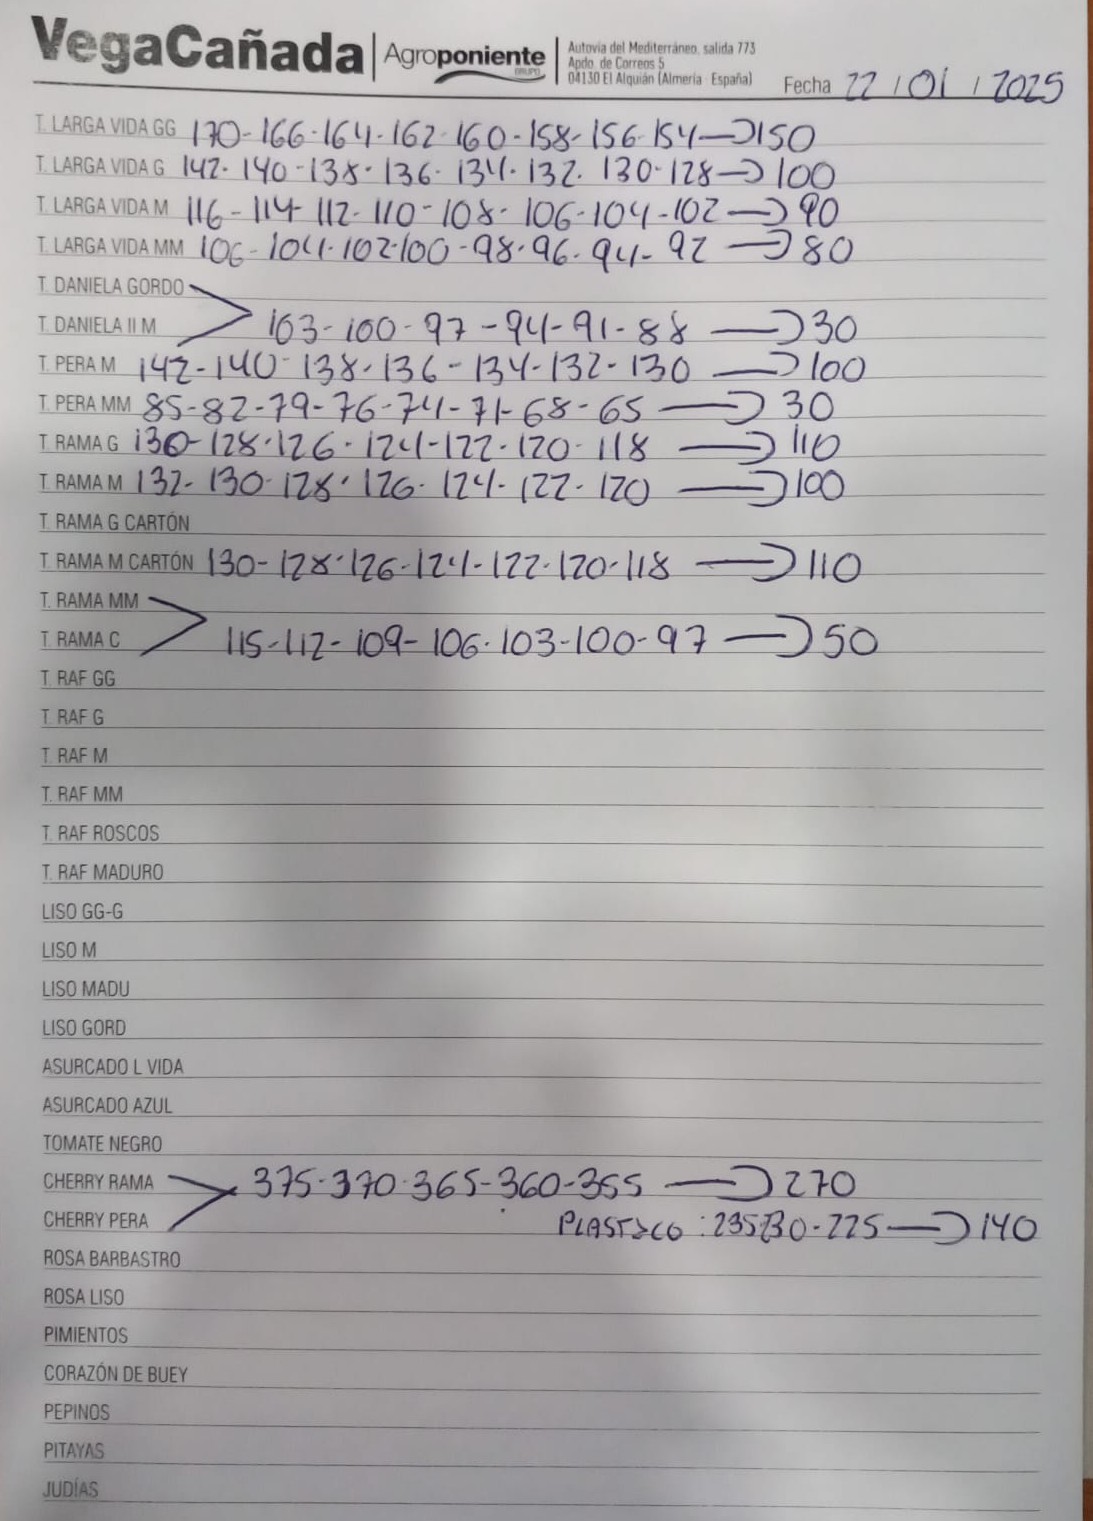 VegaCañada | Agroponiente GRUPO
Autovía del Mediterráneo, salida 773
Apdo. de Correos 5
04130 El Alquián (Almería - España)
Fecha 22 / 01 / 2025
T. LARGA VIDA GG 170-166-164-162-160-158-156-154→150
T. LARGA VIDA G 142-140-138-136-134-132-130-128→100
T. LARGA VIDA M 116-114-112-110-108-106-104-102→90
T. LARGA VIDA MM 106-104-102-100-98-96-94-92→80
T. DANIELA GORDO
T. DANIELA II M 103-100-97-94-91-88→30
T. PERA M 142-140-138-136-134-132-130→100
T. PERA MM 85-82-79-76-74-71-68-65→30
T. RAMA G 130-128-126-124-122-120-118→110
T. RAMA M 132-130-128-126-124-122-120→100
T. RAMA G CARTÓN
T. RAMA M CARTÓN 130-128-126-124-122-120-118→110
T. RAMA MM
T. RAMA C 115-112-109-106-103-100-97→50
T. RAF GG
T. RAF G
T. RAF M
T. RAF MM
T. RAF ROSCOS
T. RAF MADURO
LISO GG-G
LISO M
LISO MADU
LISO GORD
ASURCADO L VIDA
ASURCADO AZUL
TOMATE NEGRO
CHERRY RAMA 375-370-365-360-355→270
CHERRY PERA PLASTICO: 235-230-225→140
ROSA BARBASTRO
ROSA LISO
PIMIENTOS
CORAZÓN DE BUEY
PEPINOS
PITAYAS
JUDÍAS